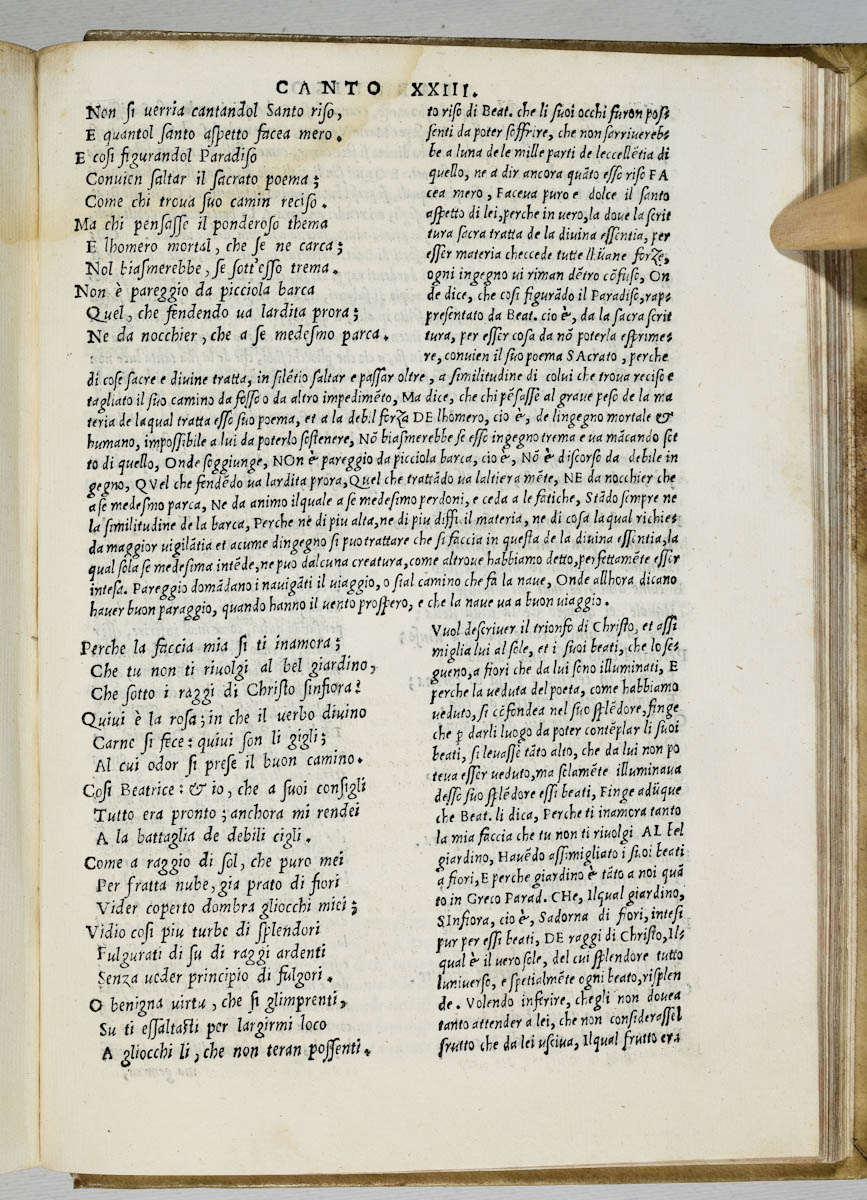 CANTO XXIII.
Non si uerria cantandol Santo riso,
E quantol santo aspetto facea mero.
E cosi figurandol Paradiso
Conuien saltar il sacrato poema;
Come chi troua suo camin reciso.
Ma chi pensasse il ponderoso thema
E lhomero mortal, che se ne carca;
Nol biasmerebbe, se sott'esso trema.
Non è pareggio da picciola barca
Quel, che fendendo ua lardita prora;
Ne da nocchier, che a se medesmo parca.
to riso di Beat. che li suoi occhi furon pos=
senti da poter soffrire, che non serriuereb=
be a luna dele mille parti de leccellẽtia di
quello, ne a dir ancora quãto esso riso FA
cea mero, Faceua puro e dolce il santo
aspetto di lei, perche in uero, la doue la scrit
tura sacra tratta de la diuina essentia, per
esser materia checcede tutte lhuane forze,
ogni ingegno ui riman dẽtro cõfuso, On
de dice, che cosi figurãdo il Paradiso, rap=
presentato da Beat. cio è, da la sacra scrit
tura, per esser cosa da nõ poterla esprime=
re, conuien il suo poema SAcrato, perche
di cose sacre e diuine tratta, in silẽtio saltar e passar oltre, a similitudine di colui che troua reciso e
tagliato il suo camino da fosso o da altro impedimẽto, Ma dice, che chi pẽsasse al graue peso de la ma
teria de laqual tratta esso suo poema, et a la debil forza DE lhomero, cio è, de lingegno mortale &
humano, impossibile a lui da poterlo sostenere, Nõ biasmerebbe se esso ingegno trema e ua mãcando sot
to di quello, Onde soggiunge, NOn è pareggio da picciola barca, cio è, Nõ è discorso da debile in
gegno, QVel che fendẽdo ua lardita prora, Quel che trattãdo ua laltiera mẽte, NE da nocchier che
a se medesmo parca, Ne da animo ilquale a se medesimo perdoni, e ceda a le fatiche, Stãdo sempre ne
la similitudine de la barca, Perche ne di piu alta, ne di piu diffi.il materia, ne di cosa laqual richie=
da maggior uigilãtia et acume dingegno si puo trattare che si faccia in questa de la diuina essentia, la
qual sola se medesima intẽde, ne puo dalcuna creatura, come altroue habbiamo detto, perfettamẽte esser
intesa. Pareggio domãdano i nauigãti il uiaggio, o sial camino che fa la naue, Onde allhora dicano
hauer buon paraggio, quando hanno il uento prospero, e che la naue ua a buon uiaggio.
Perche la faccia mia si ti inamora;
Che tu non ti riuolgi al bel giardino,
Che sotto i raggi di Christo sinfiora?
Quiui è la rosa; in che il uerbo diuino
Carne si fece: quiui son li gigli;
Al cui odor si prese il buon camino.
Cosi Beatrice: & io, che a suoi consigli
Tutto era pronto; anchora mi rendei
A la battaglia de debili cigli.
Come a raggio di sol, che puro mei
Per fratta nube, gia prato di fiori
Vider coperto dombra gliocchi miei;
Vidio cosi piu turbe di splendori
Fulgurati di su di raggi ardenti
Senza ueder principio di fulgori.
O benigna uirtu, che si glimprenti,
Su ti essaltasti per largirmi loco
A gliocchi li, che non teran possenti.
Vuol descriuer il trionfo di Christo, et assi
miglia lui al sole, et i suoi beati, che lo se=
gueno, a fiori che da lui sono illuminati, E
perche la ueduta del poeta, come habbiamo
ueduto, si cõfondea nel suo splẽdore, finge
che ꝑ darli luogo da poter contẽplar li suoi
beati, si leuasse tãto alto, che da lui non po
teua esser ueduto, ma solamẽte illuminaua
desso suo splẽdore essi beati, Finge adũque
che Beat. li dica, Perche ti inamora tanto
la mia faccia che tu non ti riuolgi AL bel
giardino, Hauẽdo assimigliato i suoi beati
a fiori, E perche giardino è tãto a noi quã
to in Greco Parad. CHe, Ilqual giardino,
SInfiora, cio è, Sadorna di fiori, intesi
pur per essi beati, DE raggi di Christo, Il=
qual è il uero sole, del cui splendore tutto
luniuerso, e spetialmẽte ogni beato, risplen
de. Volendo inferire, chegli non douea
tanto attender a lei, che non considerassel
frutto che da lei usciua, Ilqual frutto era